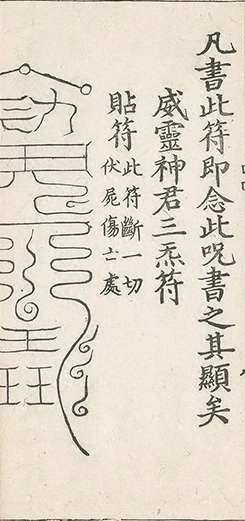 凡書此符即念此咒書之其顯矣
威靈神君三炁符
貼符此符斷一切
伏屍傷亡處